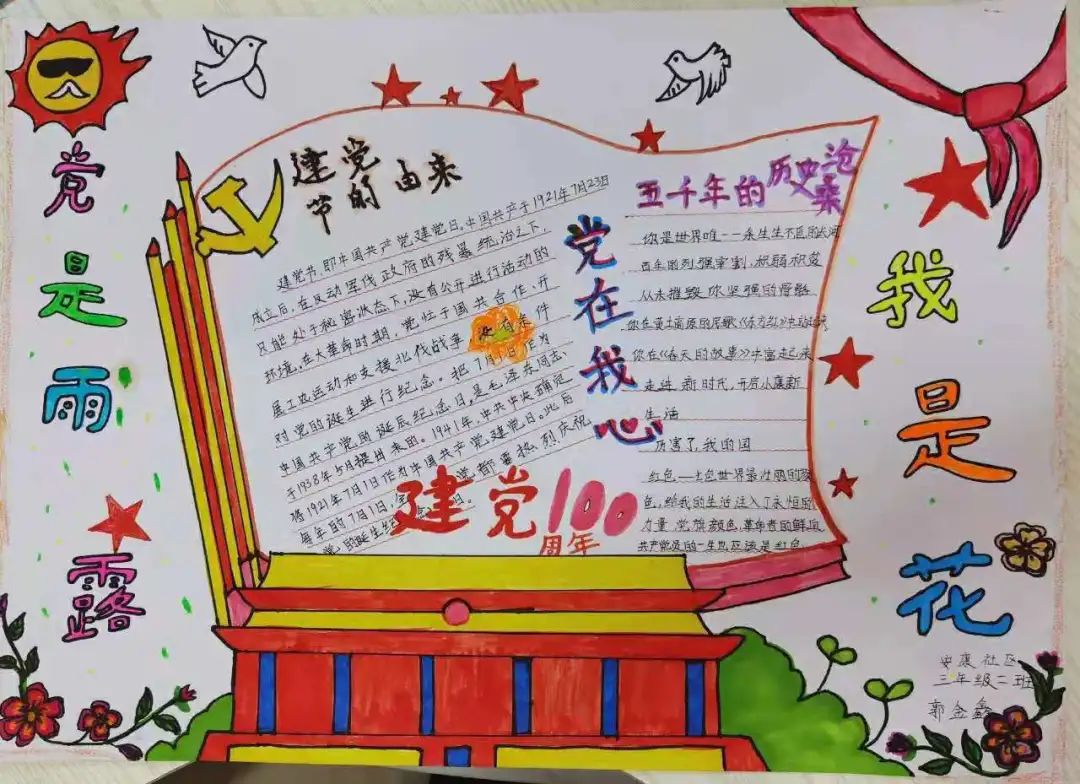 党是雨露
建党
节的由来
建党节，即中国共产党建党日。中国共产于1921年7月23日
成立后，在反动军伐政府的残暴统治之下，
只能处于秘密状态下，没有公开进行活动的
环境。在大革命时期，党忙于国共合作、开
展工农运动和支援北伐战争，没有条件
对党的诞生进行纪念。把7月1日作为
中国共产党的诞辰纪念日，是毛泽东同志
于1938年5月提出来的。1941年，中共中央确定
将1921年7月1日作为中国共产党建党日。此后
每年的7月1日，全党都要热烈庆祝
党的诞生纪念日。
党在我心
建党100
周年
五千年的历史沧桑
你是世界唯一一条生生不息的
百年的列强宰割，积弱积贫
从未摧毁你坚强的骨骼
你在黄土高原的《东方红》中
你在《春天的故事》中富起已来
走进新时代，开启小康新
生活
厉害了我的国
红色——是世界最壮丽的颜
色，给我的生活注入了永恒的
力量，党旗颜色，革命者的鲜血
共产党员的一生也应该是红色
我是花
安康社区
三年级二班
郭金鑫